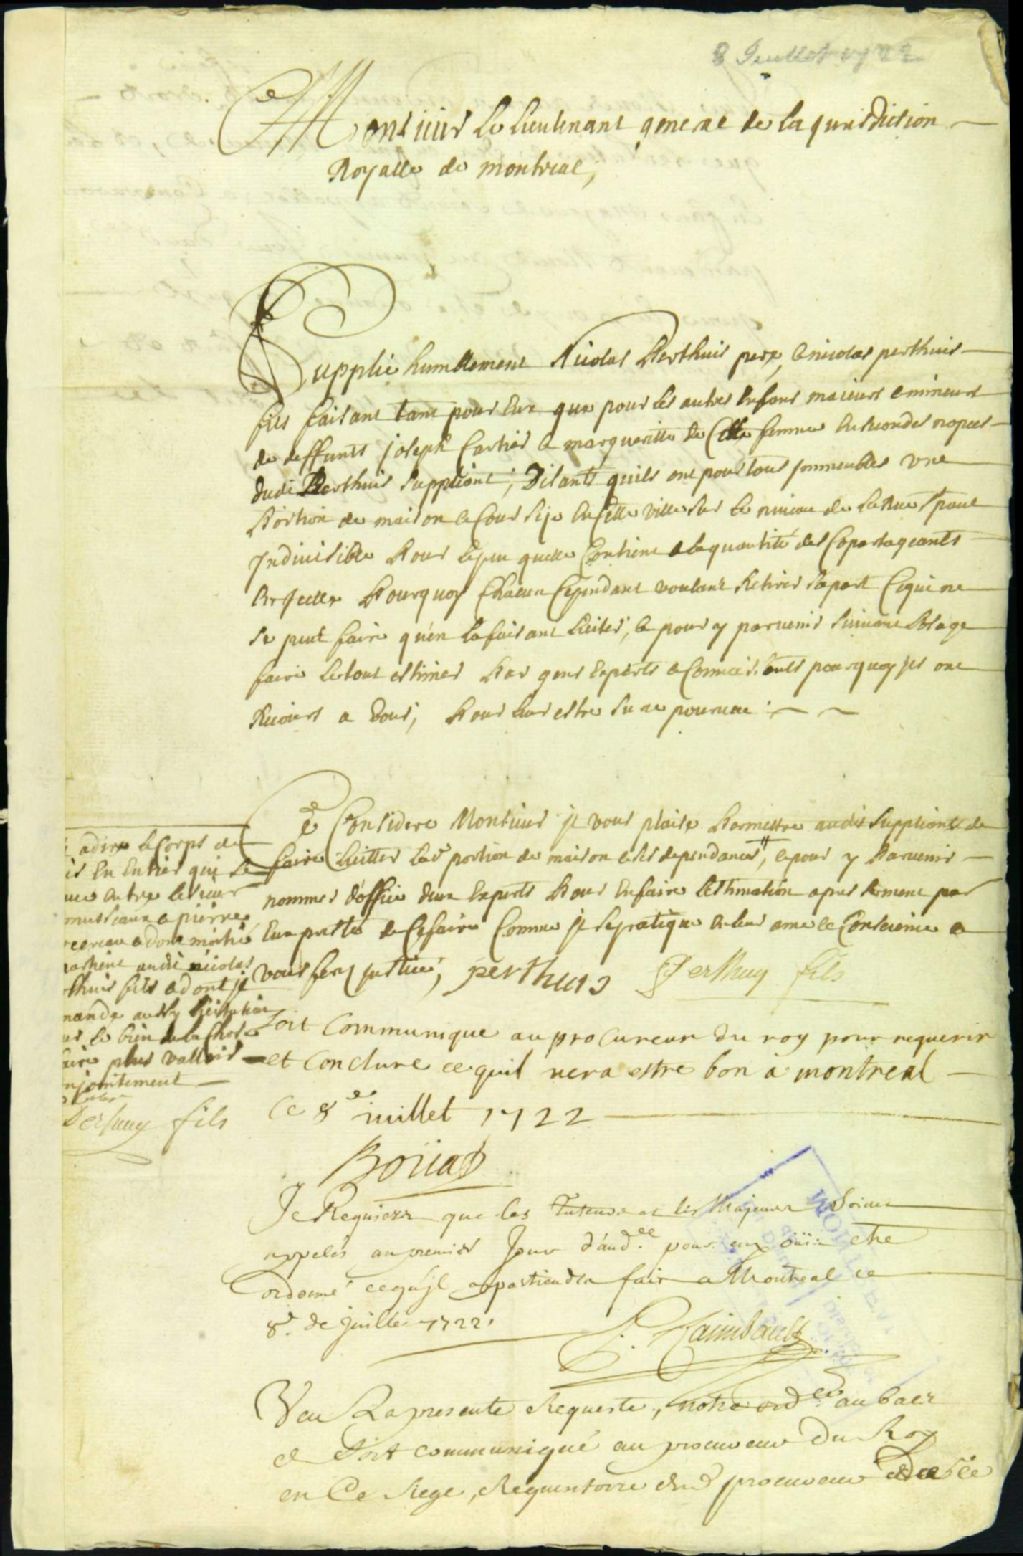 8 Juillet 1722
A Monsieur Le Lieutenant general de la Jurisdiction
Royalle de montreal,
Supplie humblement Nicolas Perthuis pere, & nicolas perthuis
fils faisant tant pour Eux que pour les autres Enfans majeurs & mineurs
de deffunts joseph Cartier & margueritte de femme En secondes nopces
dudit Perthuis suppliant, Disants quils ont pour tous jmmeubles une
Portion de maison & Cour size En Cette ville sur le niveau de la Rue St paul
Jndivisible Pour le peu quelle Contient & la quantité des Copartageants
Pourquoy Chacun Cependant voulant Retirer sa part Ce qui ne
se peut faire qu'en la faisant liciter, & pour y parvenir suivant L'usage
faire le tout estimer Par gens Experts & Connoissants pourquoy jls ont
Recours a Vous, Pour leur estre sur ce pourveu
Ce Considéré Monsieur jl vous plaise Permettre audits supplions de
faire liciter lad portion de maison & ses dependances, & pour y Parvenir
nommer d'office deux Experts Pour En faire l'estimation apres serment par
Eux presté de Ce faire Comme jl se pratique en leur ame & Conscience &
vous ferez justice, perthuis Perthuy fils
a dire le Corps de
En Entier qui se
entre le sieur
& pierre
& dont moitié
audit nicolas
fils & dont jl
demande aussy licitation
le bien de la Chose
plus valloir
conjointement
Perthuy fils
Soit Communiqué au procureur du roy pour requerir
et Conclure ce quil vera estre bon à montreal
Ce 8e juillet 1722
Boüat
Je Requiers que les Tuteurs et les Majeurs Soient
appelés au premier Jour d'audce pour eux oüis etre
ordonné ce qu'jl appartiendra fait a Montreal ce
8e de juillet 1722.
J. Raimbault
Veu La presente Requeste, notre ordce au bas
de Soit communiqué au procureur Du Roy
en Ce siege, Requisitoire dud procureur